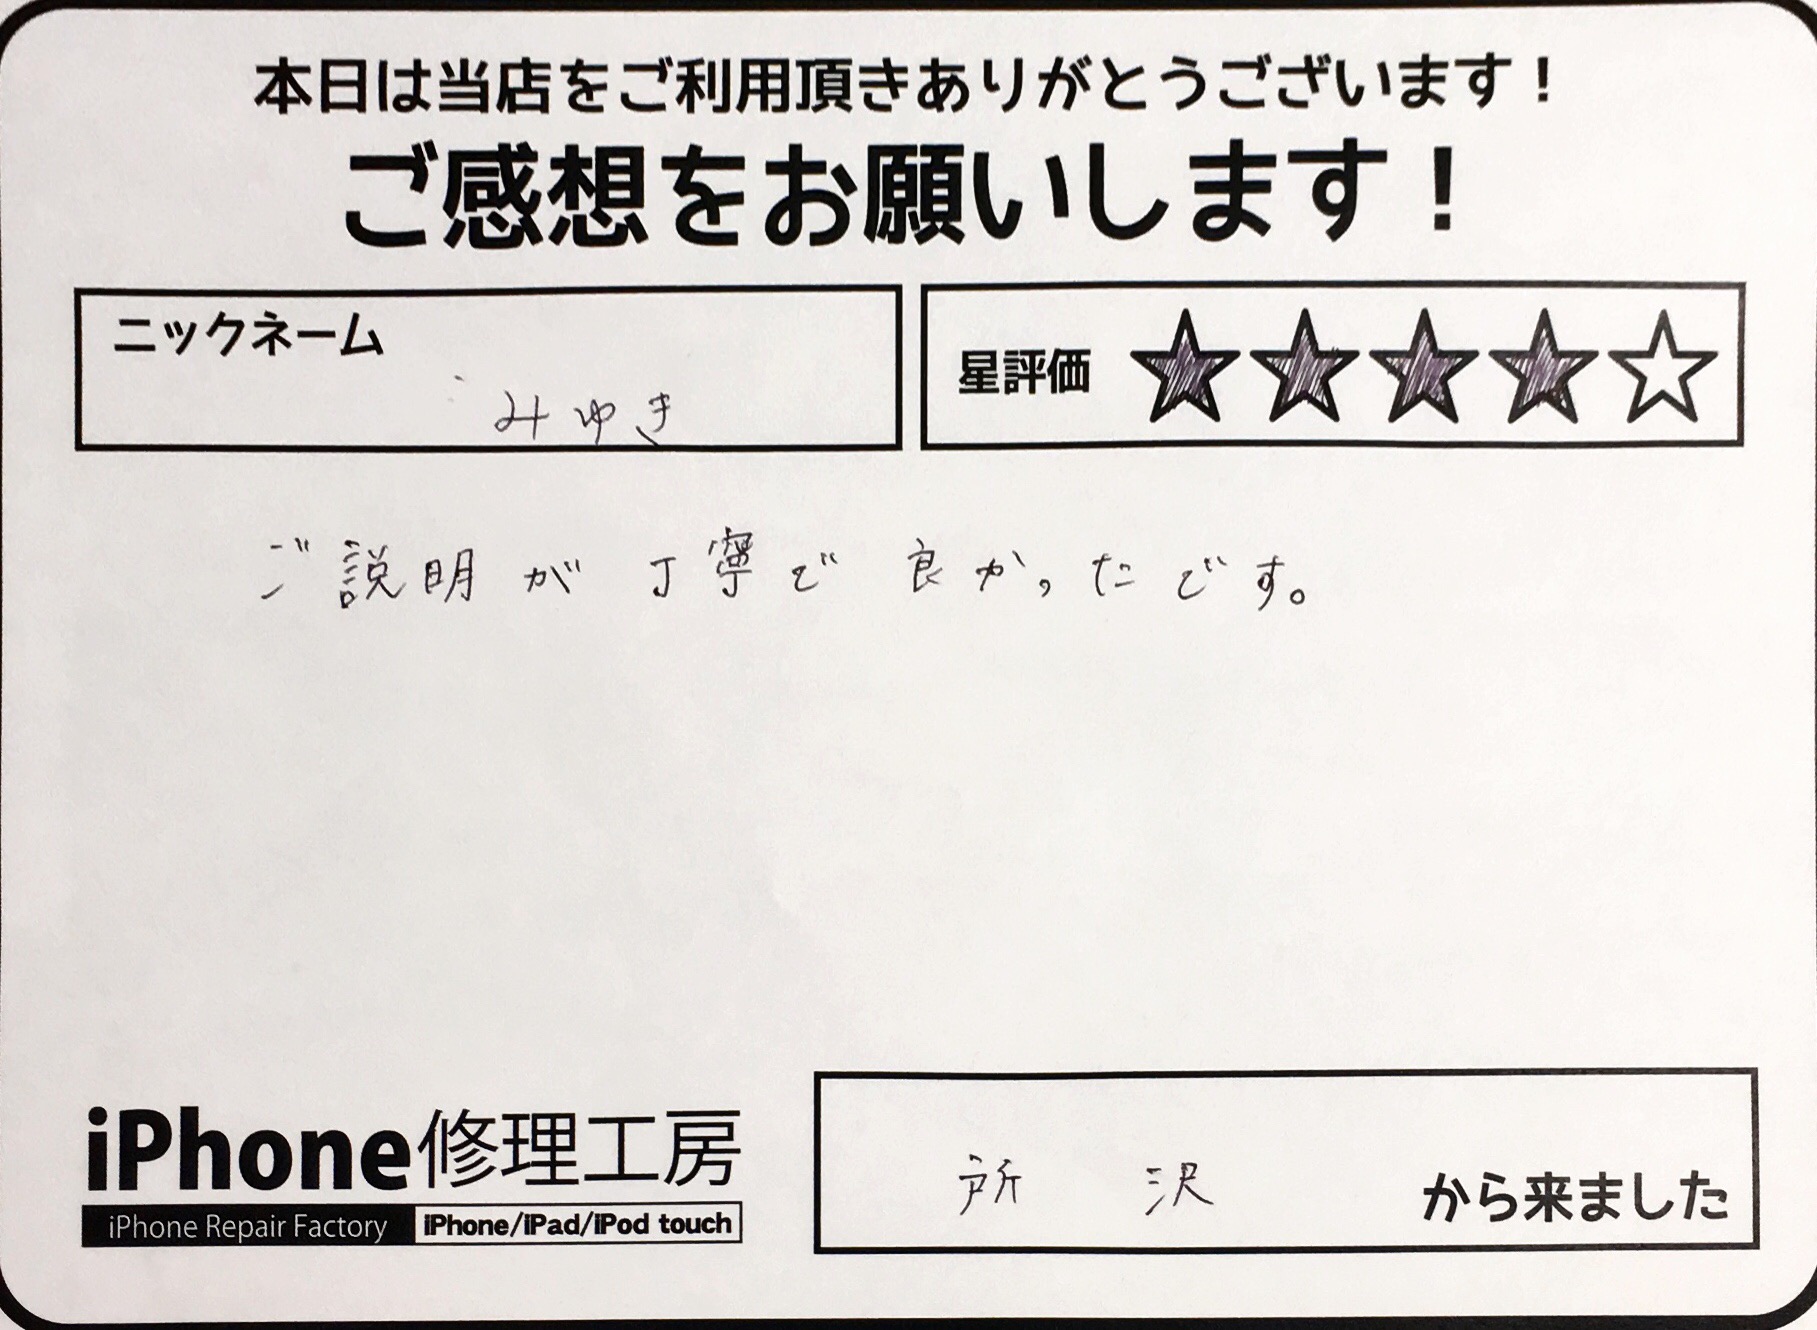 本日は当店をご利用頂きありがとうございます！
ご感想をお願いします！
ニックネーム
みゆき
星評価 ★★★★☆
ご説明が丁寧で良かったです。
iPhone修理工房
iPhone Repair Factory iPhone/iPad/iPod touch
所沢 から来ました